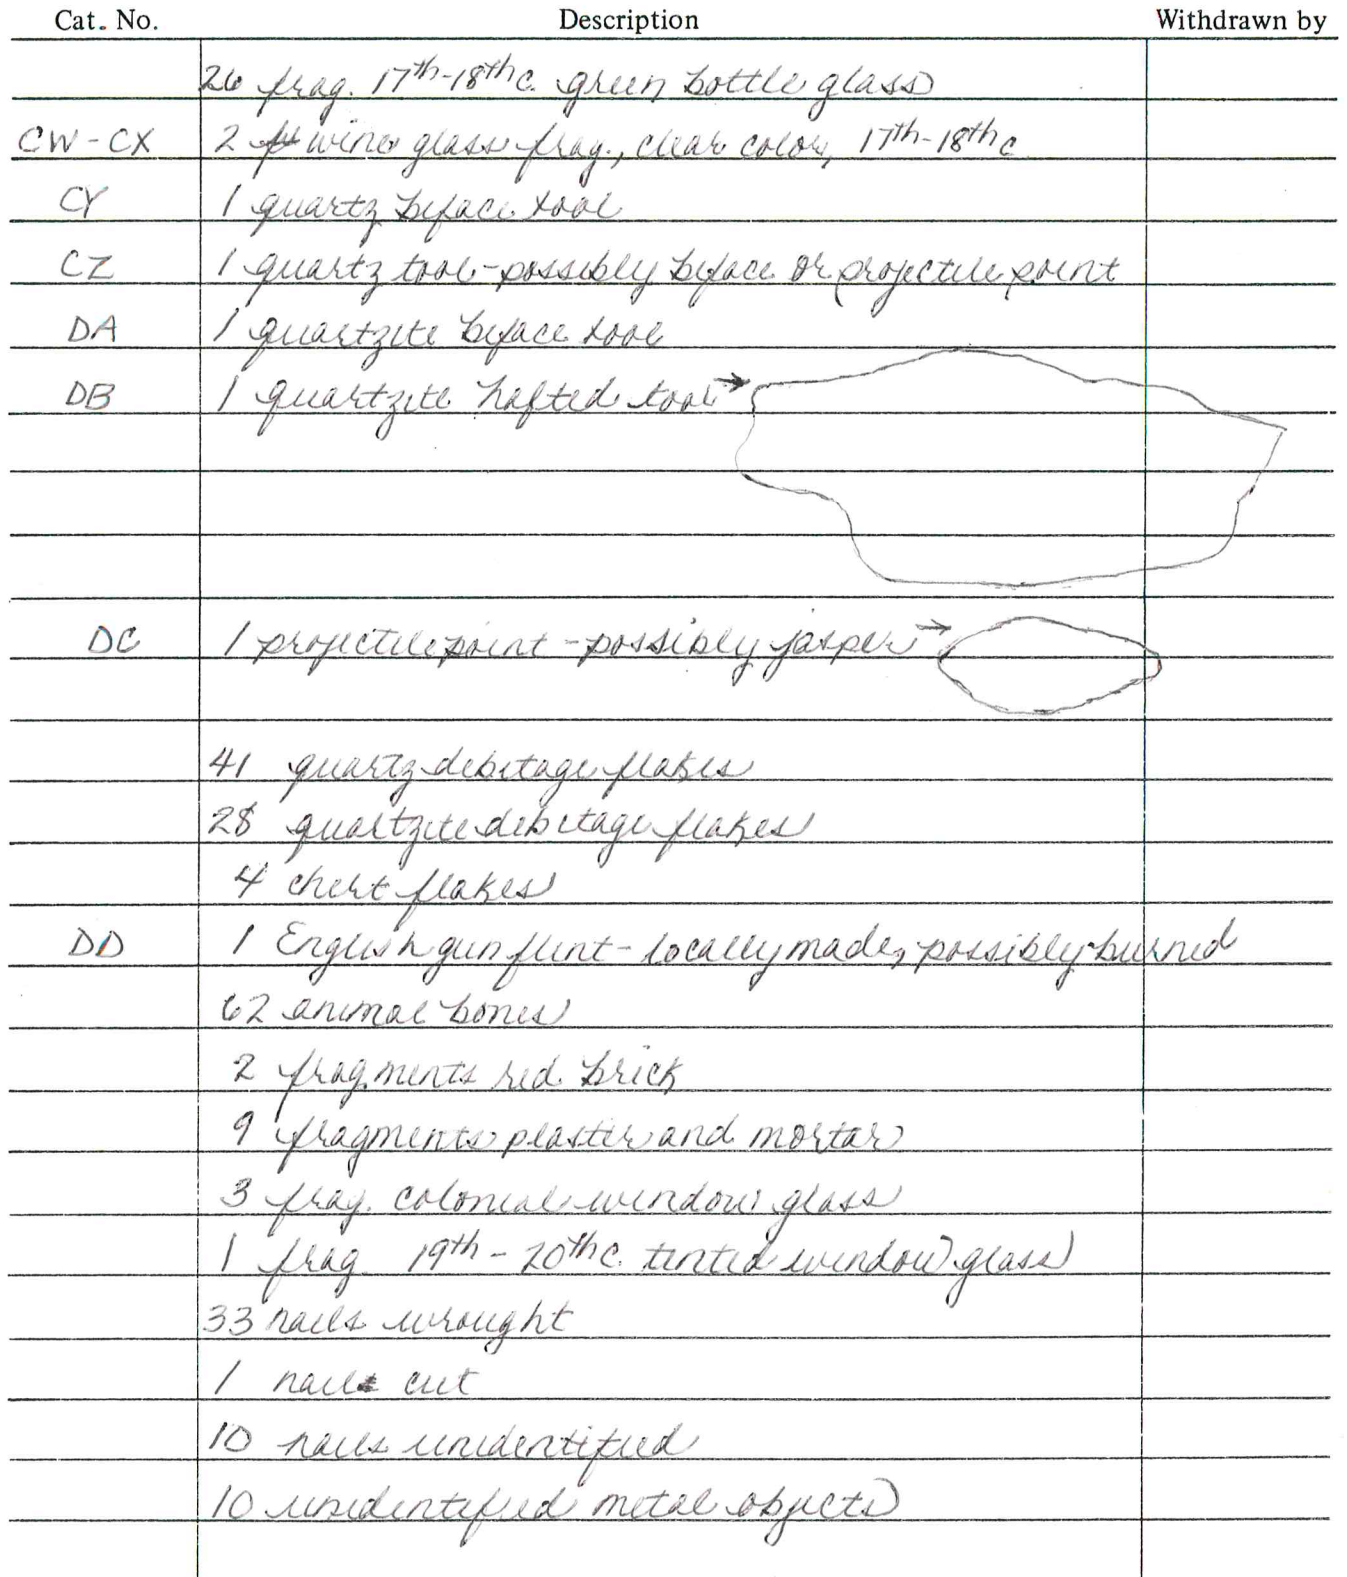 Cat. No. Description Withdrawn by
26 frag. 17th-18th c. green bottle glass
CW-CX 2 wine glass frag., clear color, 17th-18th c
CY 1 quartz biface tool
CZ 1 quartz tool-possibly biface or projectile point
DA 1 quartzite biface tool
DB 1 quartzite hafted tool →
DC 1 projectile point - possibly jasper →
41 quartz debitage flakes
28 quartzite debitage flakes
4 chert flakes
DD 1 English gun flint - locally made, possibly burned
62 animal bones
2 fragments red brick
9 fragments plaster and mortar
3 frag. colonial window glass
1 frag. 19th - 20th c. tinted window glass
33 nails wrought
1 nail cut
10 nails unidentified
10 unidentified metal objects